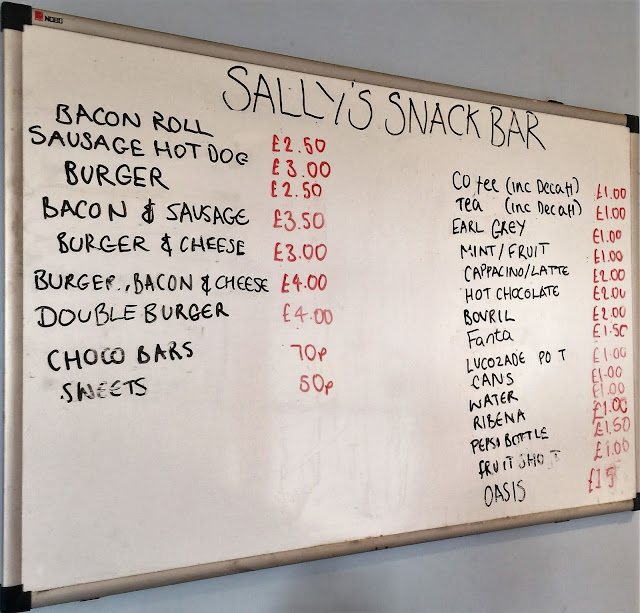 NOBO
SALLY'S SNACK BAR
BACON ROLL £2.50
SAUSAGE HOT DOG £3.00
BURGER £2.50
BACON & SAUSAGE £3.50
BURGER & CHEESE £3.00
BURGER, BACON & CHEESE £4.00
DOUBLE BURGER £4.00
CHOCO BARS 70p
SWEETS 50p
CO fee (inc Decaf) £1.00
Tea (inc Decaf) £1.00
EARL GREY £1.00
MINT/FRUIT £1.00
CAPPACINO/LATTE £2.00
HOT CHOCOLATE £2.00
BOVRIL £2.00
Fanta £1.50
LUCOZADE PO T £1.00
CANS £1.00
WATER £1.00
RIBENA £1.00
PEPSI BOTTLE £1.50
FRUIT SHO T £1.00
OASIS £1 5